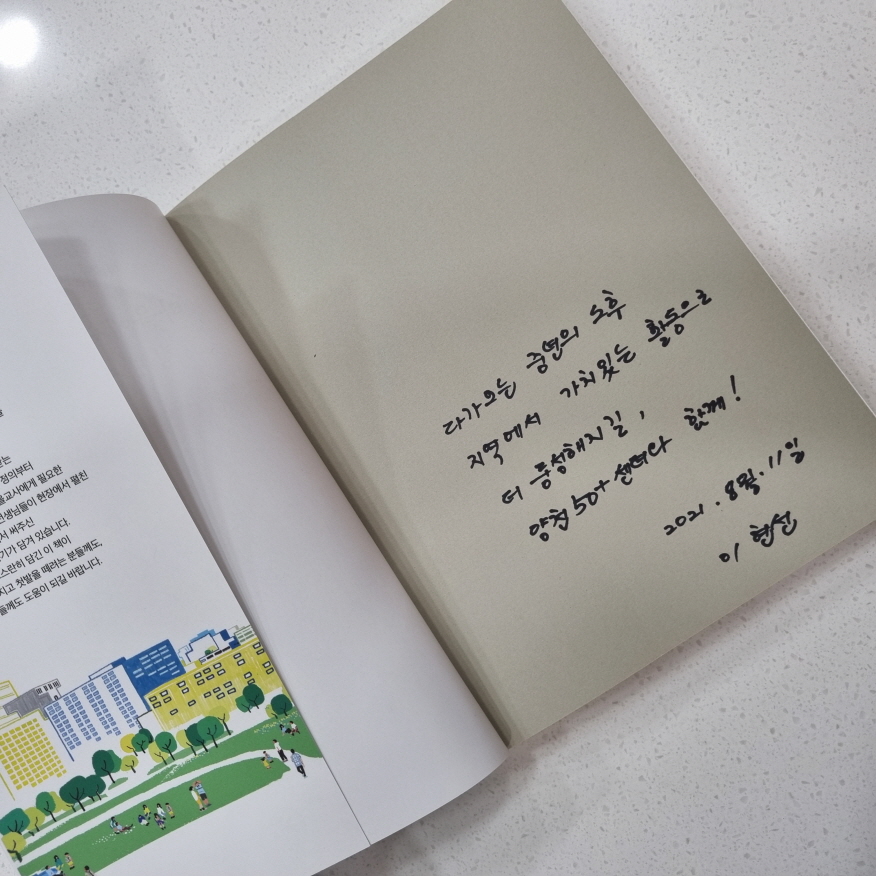 는
정의부터
물교사에게 필요한
선생님들이 현장에서 펼친
서 써주신
기가 담겨 있습니다.
스란히 담긴 이 책이
지고 첫발을 떼려는 분들께도,
들께도 도움이 되길 바랍니다.
다가오는 중년의 노후
지역에서 가치있는 활동으로
더 풍성해지길,
양천50+센터와 함께!
2021. 8월. 11일
이현선